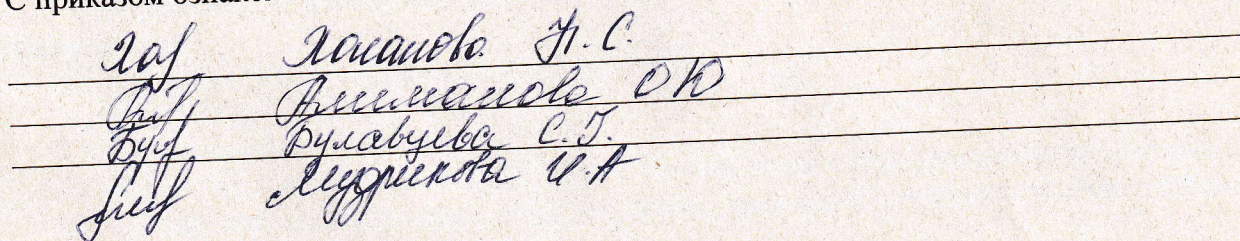 С приказом ознако
Хол Холанова Н. С.
Алиманова О Ю
Бул Булавцева С. Г.
Мудрикова И. А